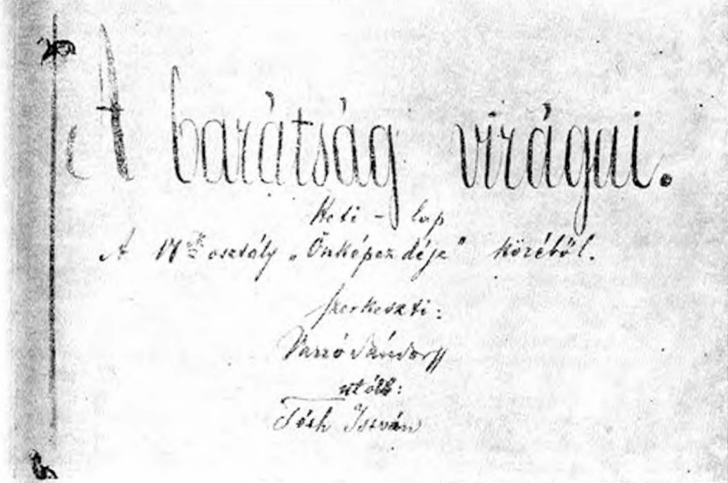 A barátság virágai.
Heti - lap
A osztály „Önképezdéje" köréből.
Szerkeszti:
Sándor
utóbb:
Tóth István